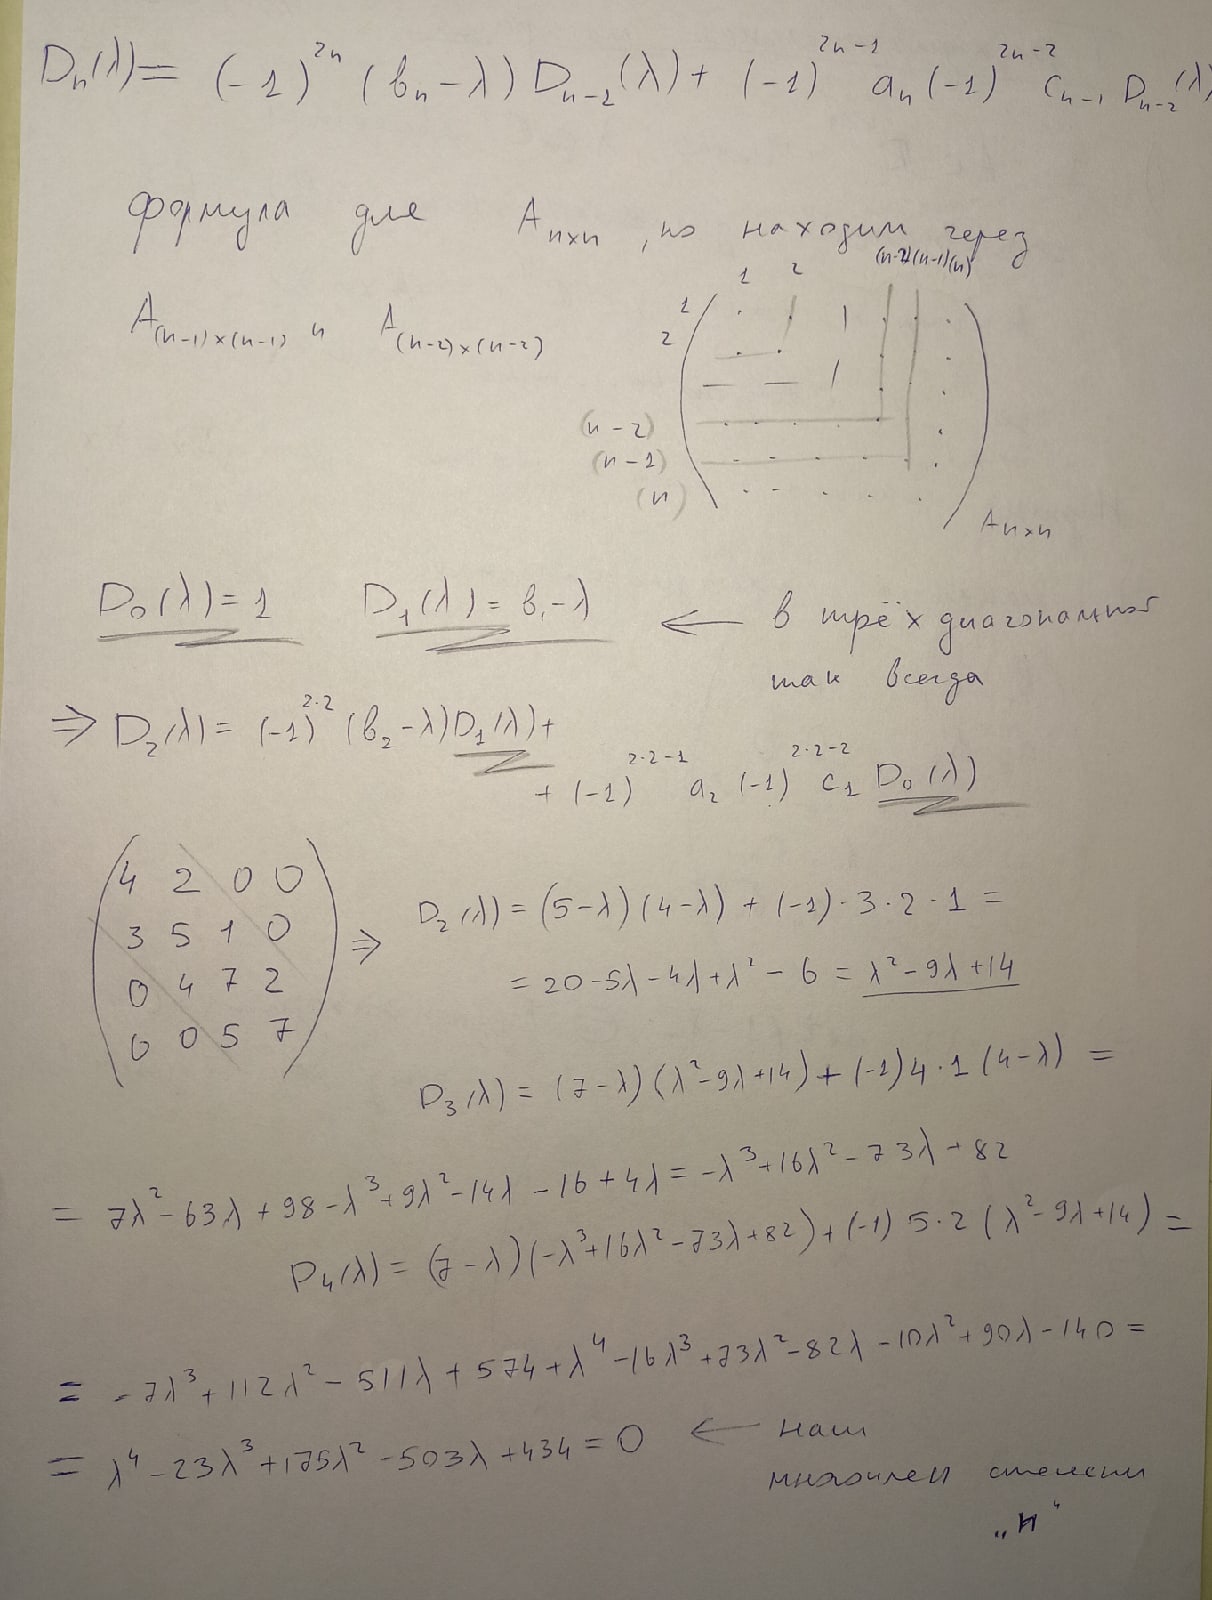 Dₙ(λ) = (-1)²ⁿ (bₙ - λ) Dₙ₋₂(λ) + (-1)²ⁿ⁻¹ aₙ (-1)²ⁿ⁻² cₙ₋₁ Dₙ₋₂(λ)
формула для Aₙₓₙ, но находим через
A₍ₙ₋₁₎ₓ₍ₙ₋₁₎ и A₍ₙ₋₂₎ₓ₍ₙ₋₂₎
1 2 (n-2)(n-1)(n)
1
2
(n-2)
(n-1)
(n)
Aₙₓₙ
D₀(λ) = 1 D₁(λ) = b₁ - λ ← в трёхдиагональной
так всегда
⇒ D₂(λ) = (-1)²·² (b₂ - λ) D₁(λ) +
+ (-1)²·²⁻¹ a₂ (-1)²·²⁻² c₁ D₀(λ)
4 2 0 0
3 5 1 0
0 4 7 2
0 0 5 7
⇒ D₂(λ) = (5-λ)(4-λ) + (-1)·3·2·1 =
= 20-5λ-4λ+λ² - 6 = λ²-9λ+14
D₃(λ) = (7-λ)(λ²-9λ+14) + (-1)4·1(4-λ) =
= 7λ²-63λ+98-λ³+9λ²-14λ-16+4λ = -λ³+16λ²-73λ+82
D₄(λ) = (7-λ)(-λ³+16λ²-73λ+82)+(-1)5·2(λ²-9λ+14) =
= -7λ³+112λ²-511λ+574+λ⁴-16λ³+73λ²-82λ-10λ²+90λ-140 =
= λ⁴-23λ³+175λ²-503λ+434 = 0 ← наш
многочлен степени
„н“